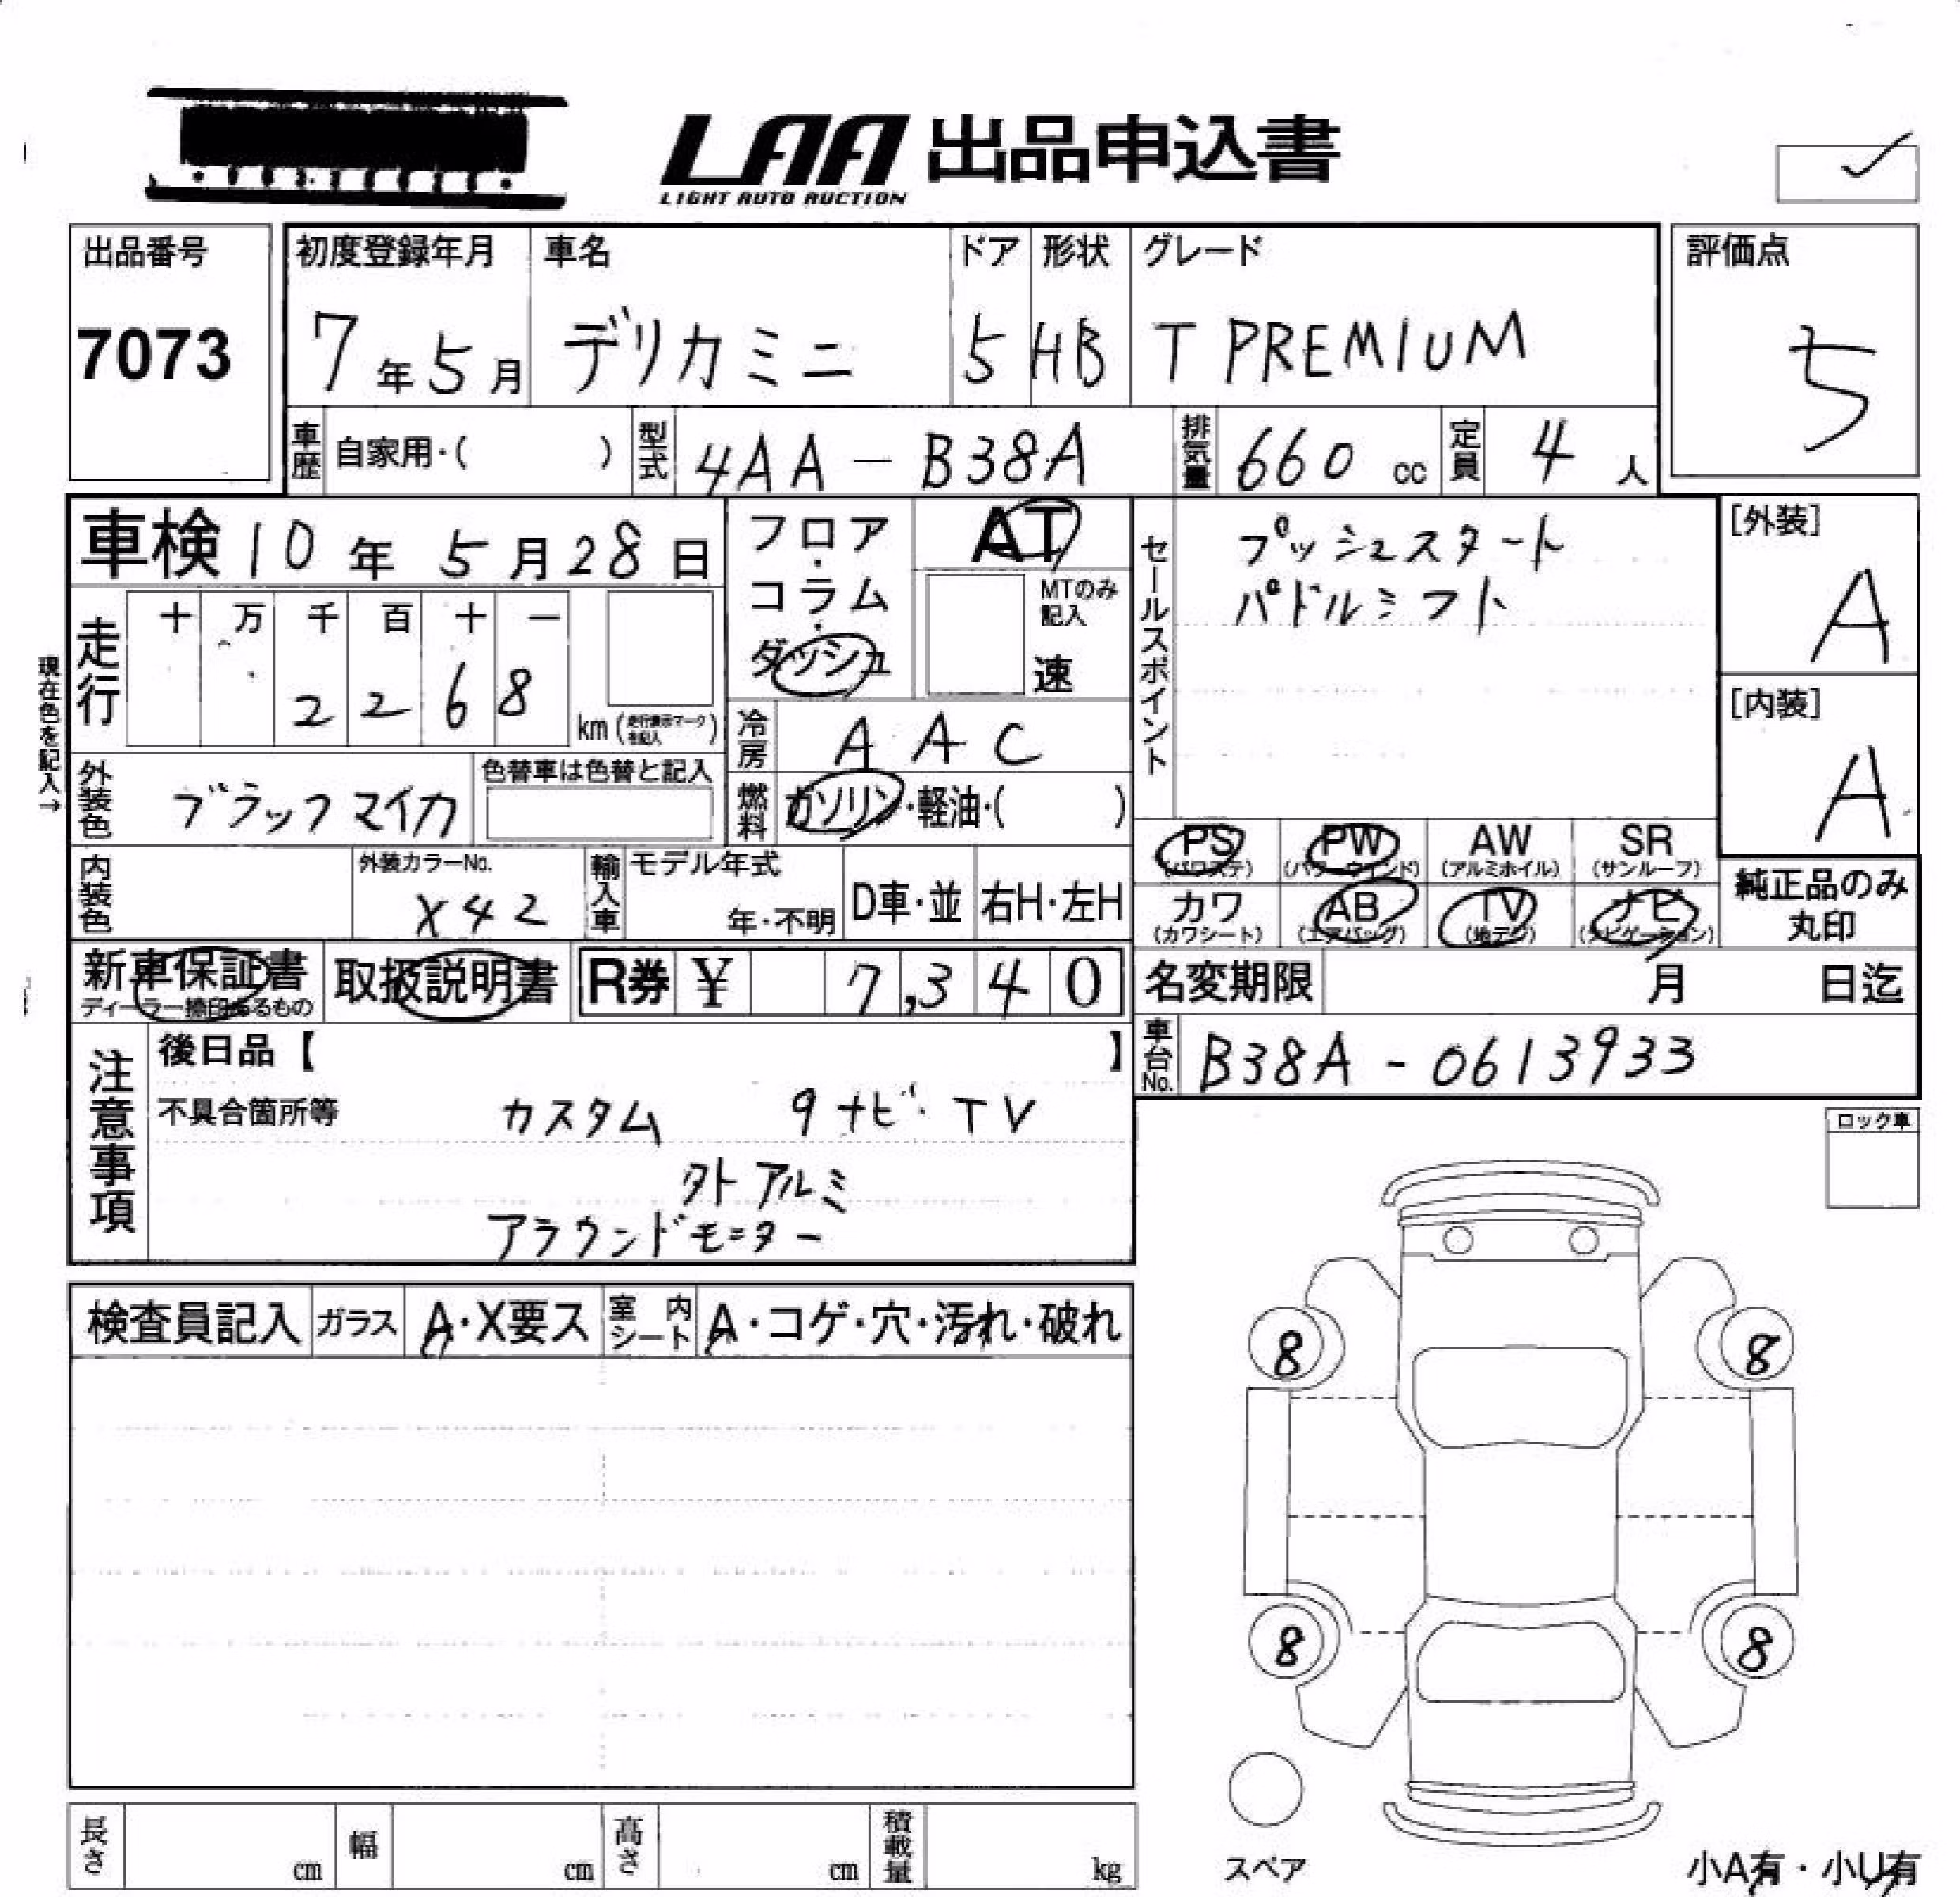 LAA 出品申込書
LIGHT AUTO AUCTION
出品番号
7073
初度登録年月
7年5月
車名
デリカミニ
ドア
5
形状
HB
グレード
T PREMIUM
評価点
5
車歴
自家用・( )
型式
4AA-B38A
排気量
660 cc
定員
4 人
車検 10年 5月28日
フロア・コラム・ダッシュ
AT
MTのみ記入
速
セールスポイント
プッシュスタート
パドルシフト
[外装]
A
[内装]
A
現在色を記入→
走行
十 万 千 百 十 一
2 2 6 8
km (走行表示マークを記入)
冷房
AAC
外装色
ブラックマイカ
色替車は色替と記入
燃料
ガソリン・軽油・( )
PS
(パワステ)
PW
(パワーウィンド)
AW
(アルミホイル)
SR
(サンルーフ)
内装色
外装カラーNo.
X42
輸入車
モデル年式
年・不明
D車・並
右H・左H
カワ
(カワシート)
AB
(エアバッグ)
TV
(地デジ)
ナビ
(ナビゲーション)
純正品のみ
丸印
新車保証書
ディーラー捺印あるもの
取扱説明書
R券 ¥ 7,340
名変期限
月 日迄
車台No.
B38A-0613933
注意事項
後日品【 】
不具合箇所等
カスタム 9ナビ・TV
外アルミ
アラウンドモニター
ロック車
検査員記入
ガラス
A・X要ス
室内シート
A・コゲ・穴・汚れ・破れ
8
8
8
8
スペア
長さ
cm
幅
cm
高さ
cm
積載量
kg
小A有・小U有